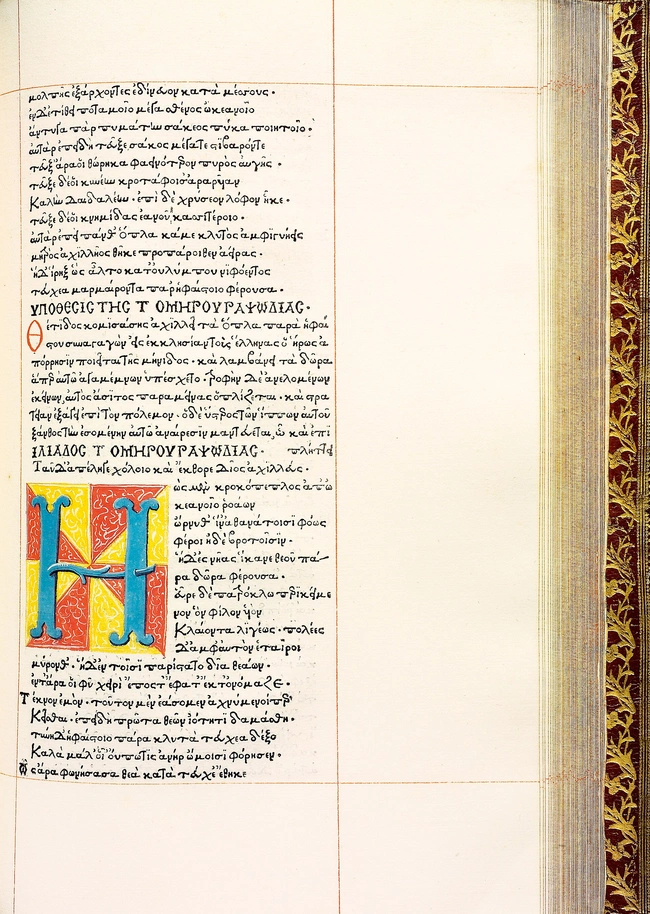 μολπῆς ἐξάρχοντες ἐδίνευον κατὰ μέσσους.
ἐν δ' ἐτίθει ποταμοῖο μέγα σθένος ὠκεανοῖο
ἄντυγα πὰρ πυμάτην σάκεος πύκα ποιητοῖο.
αὐτὰρ ἐπειδὴ τεῦξε σάκος μέγα τε στιβαρόν τε
τεῦξ' ἄρα οἱ θώρηκα φαεινότερον πυρὸς αὐγῆς.
τεῦξε δέ οἱ κυνέην κροτάφοις ἀραρυῖαν
Καλὴν δαιδαλέην. ἐπὶ δὲ χρύσεον λόφον ἧκε.
τεῦξε δέ οἱ κνημίδας ἑανοῦ κασσιτέροιο.
αὐτὰρ ἐπεὶ πάνθ' ὅπλα κάμε κλυτὸς ἀμφιγυήεις
μητρὸς ἀχιλλῆος θῆκε προπάροιθεν ἀείρας.
ἡ δ' ἴρηξ ὣς ἆλτο κατ' οὐλύμπου νιφόεντος
τεύχεα μαρμαίροντα παρ' ἡφαίστοιο φέρουσα.
ΥΠΟΘΕΣΙΣ ΤΗΣ Τ ΟΜΗΡΟΥ ΡΑΨΩΔΙΑΣ.
Θέτιδος κομισάσης ἀχιλλεῖ τὰ ὅπλα παρὰ ἡφαί
στου συναγαγὼν εἰς ἐκκλησίαν τοὺς ἕλληνας ὁ ἥρως ἀ
πόρρησιν ποιεῖται τῆς μήνιδος. καὶ λαμβάνει τὰ δῶρα
ἅπερ αὐτῷ ἀγαμέμνων ὑπέσχετο. τροφὴν δὲ ἀνελομένων
ἐκείνων, αὐτὸς ἄσιτος παραμείνας ὁπλίζεται. καὶ στρα
τείαν ἐξάγει ἐπὶ τὸν πόλεμον. ὁ δὲ ἕτερος τῶν ἵππων αὐτοῦ
ξάνθος τὴν ἐσομένην αὐτῷ ἀναίρεσιν μαντεύεται, ᾧ καὶ ἐπι
ΙΛΙΑΔΟΣ Τ ΟΜΗΡΟΥ ΡΑΨΩΔΙΑΣ. πλήττει
Ταῦ δ' ἀπέληγε χόλοιο καὶ ἔκθορε δῖος ἀχιλλεύς.
Η ὼς μὲν κροκόπεπλος ἀπ' ὠ
κεανοῖο ῥοάων
ὤρνυθ' ἵν' ἀθανάτοισι φόως
φέροι ἠδὲ βροτοῖσιν.
ἡ δ' ἐς νῆας ἵκανε θεοῦ πά
ρα δῶρα φέρουσα.
εὗρε δὲ πατρόκλῳ περικείμε
νον ὃν φίλον υἱὸν
Κλαίοντα λιγέως. πολέες
δ' ἀμφ' αὐτὸν ἑταῖροι
μύρονθ'. ἡ δ' ἐν τοῖσι παρίστατο δῖα θεάων.
ἔν τ' ἄρα οἱ φῦ χειρὶ ἔπος τ' ἔφατ' ἔκ τ' ὀνόμαζε.
Τέκνον ἐμὸν. τοῦτον μὲν ἐάσομεν ἀχνύμενοί περ
Κεῖσθαι. ἐπειδὴ πρῶτα θεῶν ἰότητι δαμάσθη.
τύνη δ' ἡφαίστοιο πάρα κλυτὰ τεύχεα δέξο
Καλὰ μάλ' οἷ' οὔπω τις ἀνὴρ ὤμοισι φόρησεν.
ὣς ἄρα φωνήσασα θεὰ κατὰ τεύχε' ἔθηκε